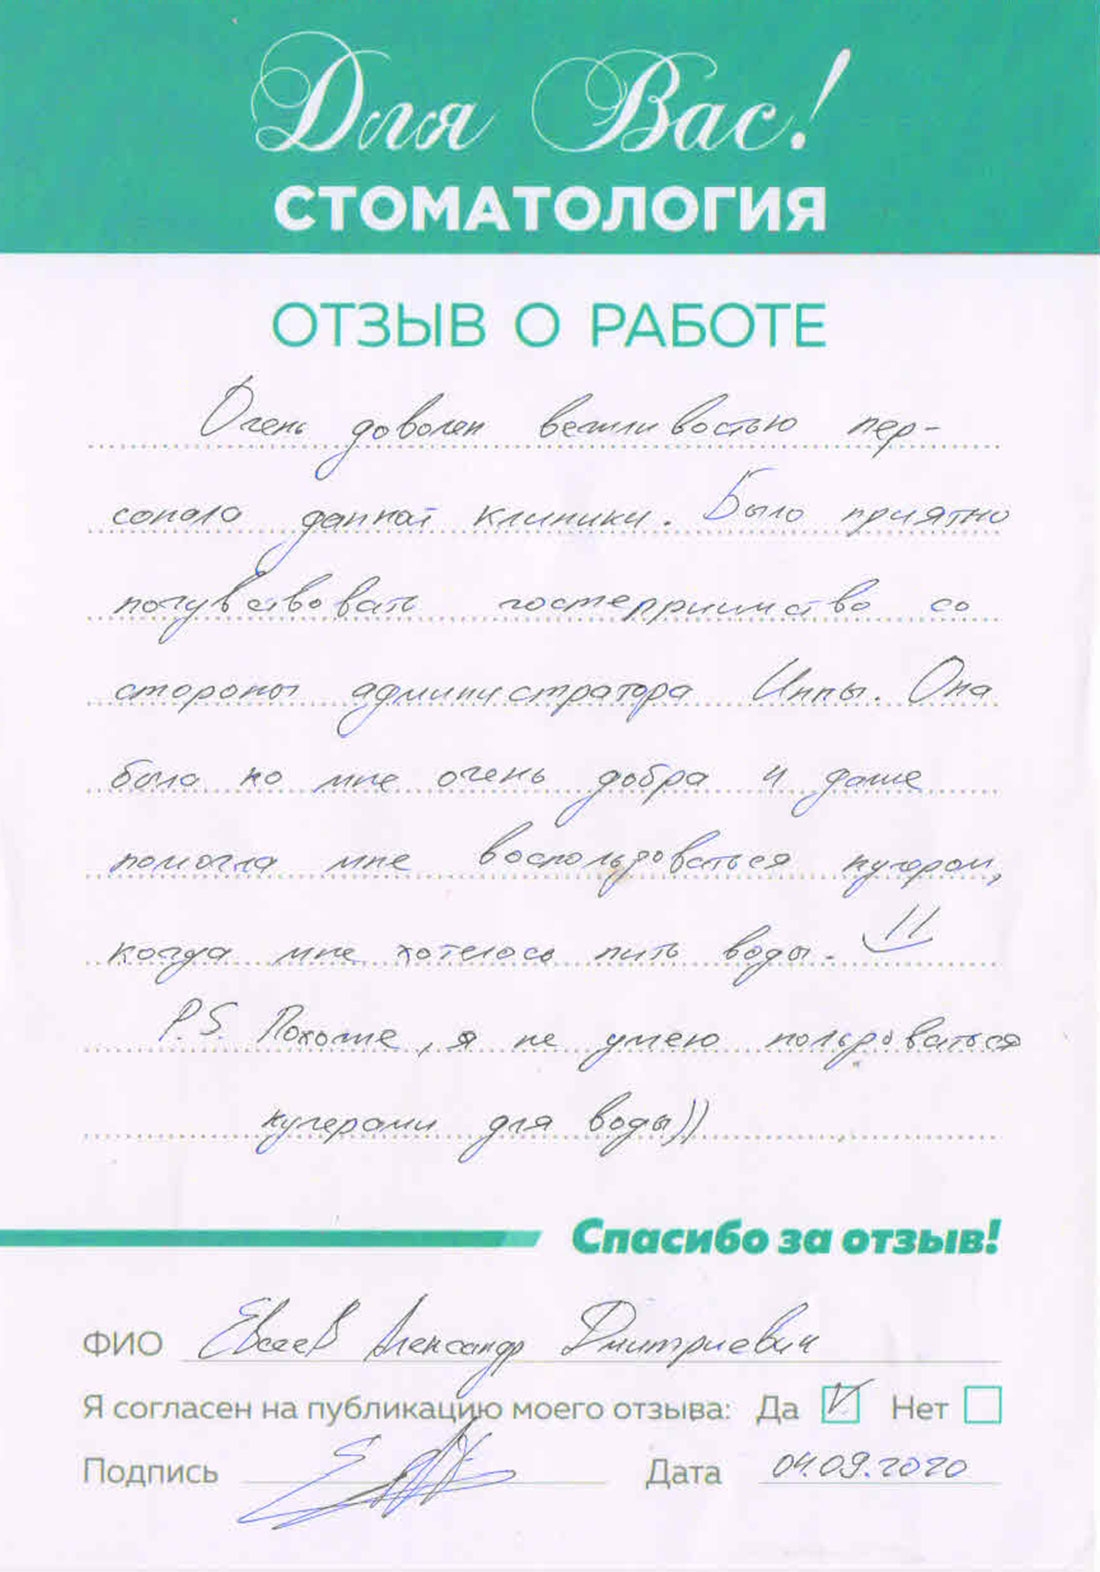 Для Вас!
СТОМАТОЛОГИЯ
ОТЗЫВ О РАБОТЕ
Очень доволен вежливостью пер-
сонала данной клиники. Было приятно
почувствовать гостеприимство со
стороны администратора Инны. Она
была ко мне очень добра и даже
помогла мне воспользоваться кулером,
когда мне хотелось пить воды.
P.S. Похоже, я не умею пользоваться
кулерами для воды))
Спасибо за отзыв!
ФИО Евсеев Александр Дмитриевич
Я согласен на публикацию моего отзыва: Да V Нет
Подпись Дата 04.09.2020